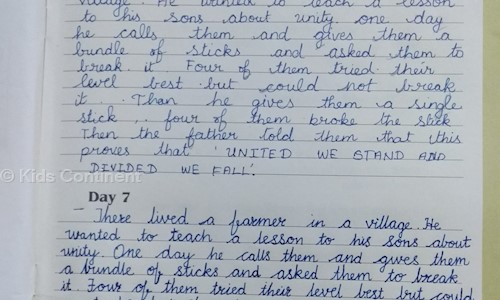 village. He wanted to teach a lesson
to his sons about unity. one day
he calls them and gives them a
bundle of sticks and asked them to
break it. Four of them tried their
level best but could not break
it. Than he gives them a single
stick, four of them broke the stick
Then the father told them that this
proves that 'UNITED WE STAND AND
DIVIDED WE FALL'.
© Kids Continent
Day 7
There lived a farmer in a village. He
wanted to teach a lesson to his sons about
unity. One day he calls them and gives them
a bundle of sticks and asked them to break
it. Four of them tried their level best but could